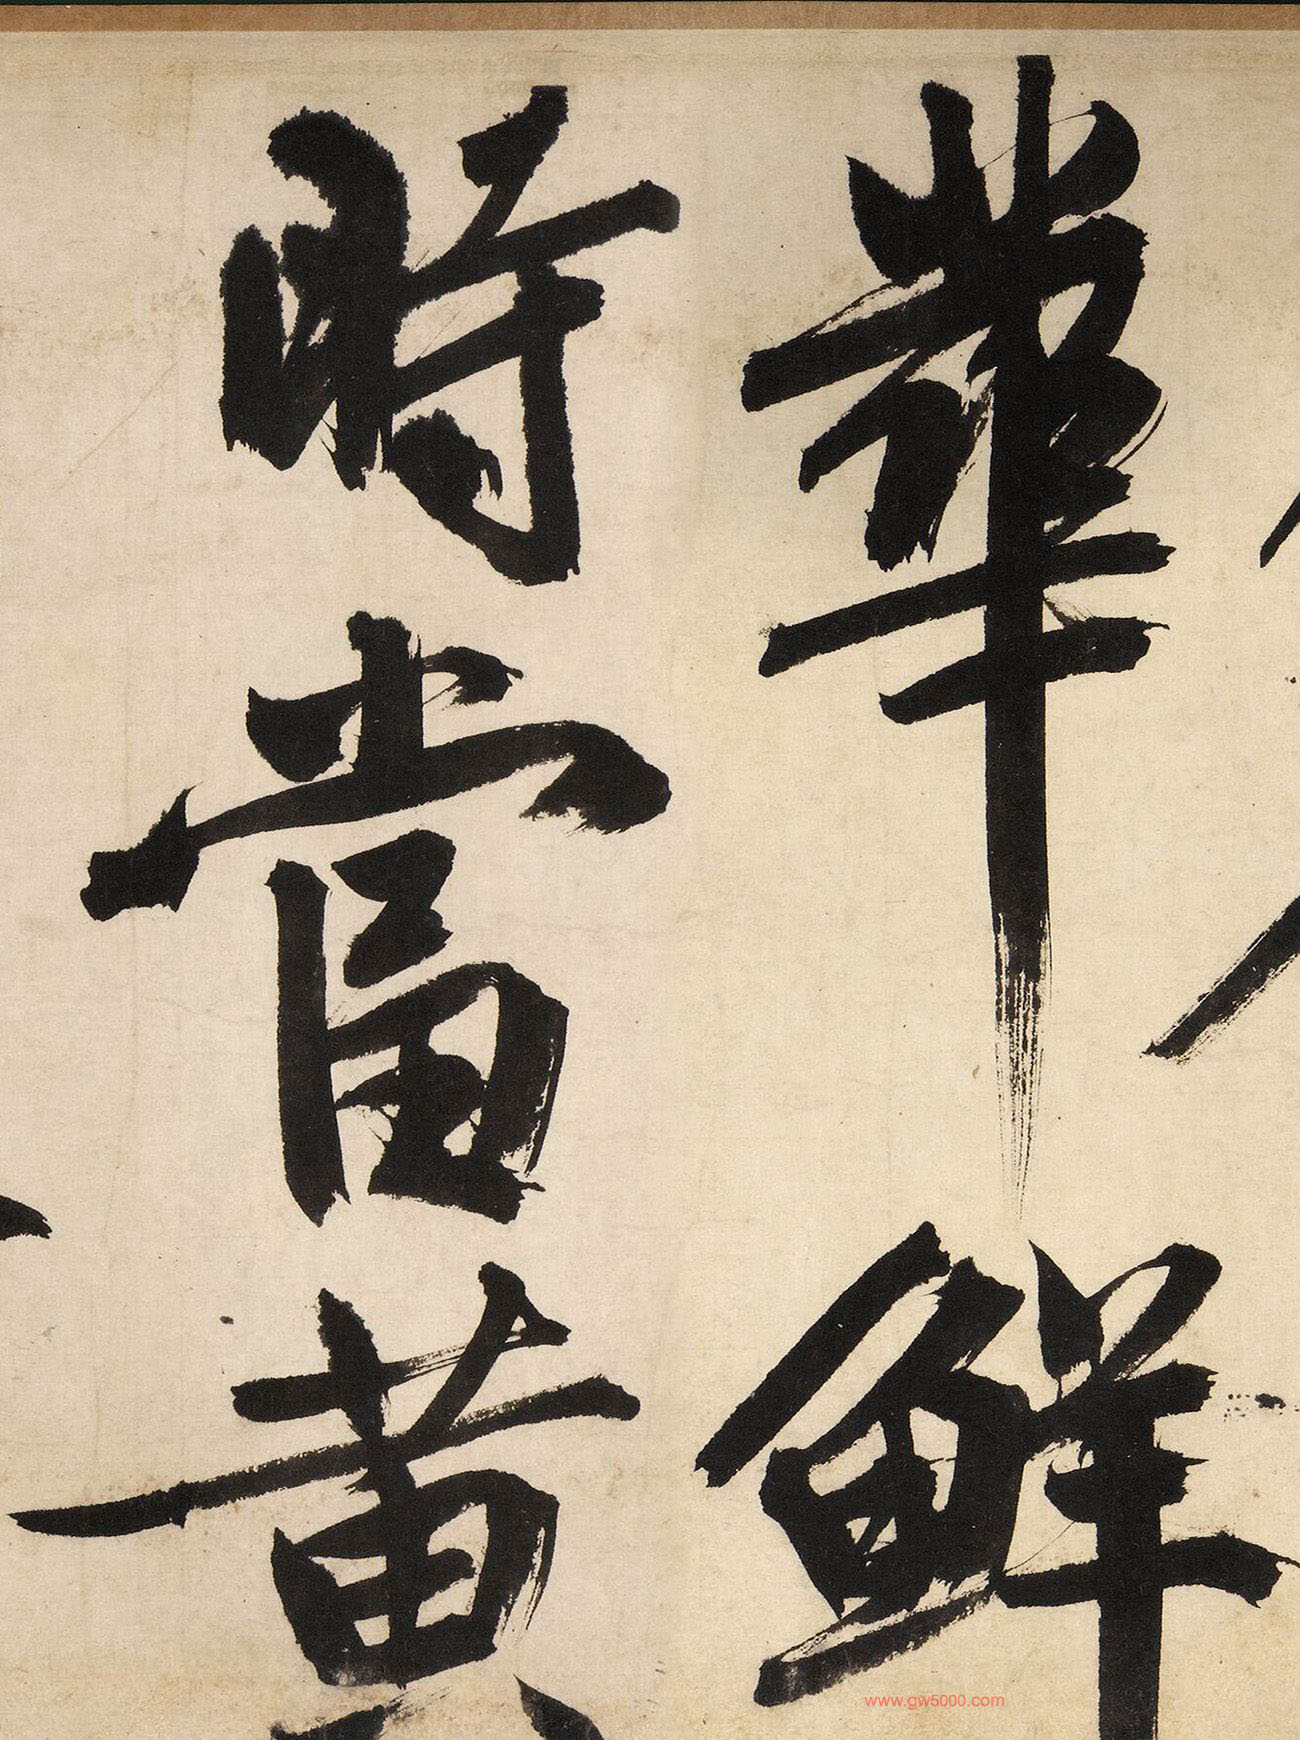 華鮮
時當黃
www.gw5000.com